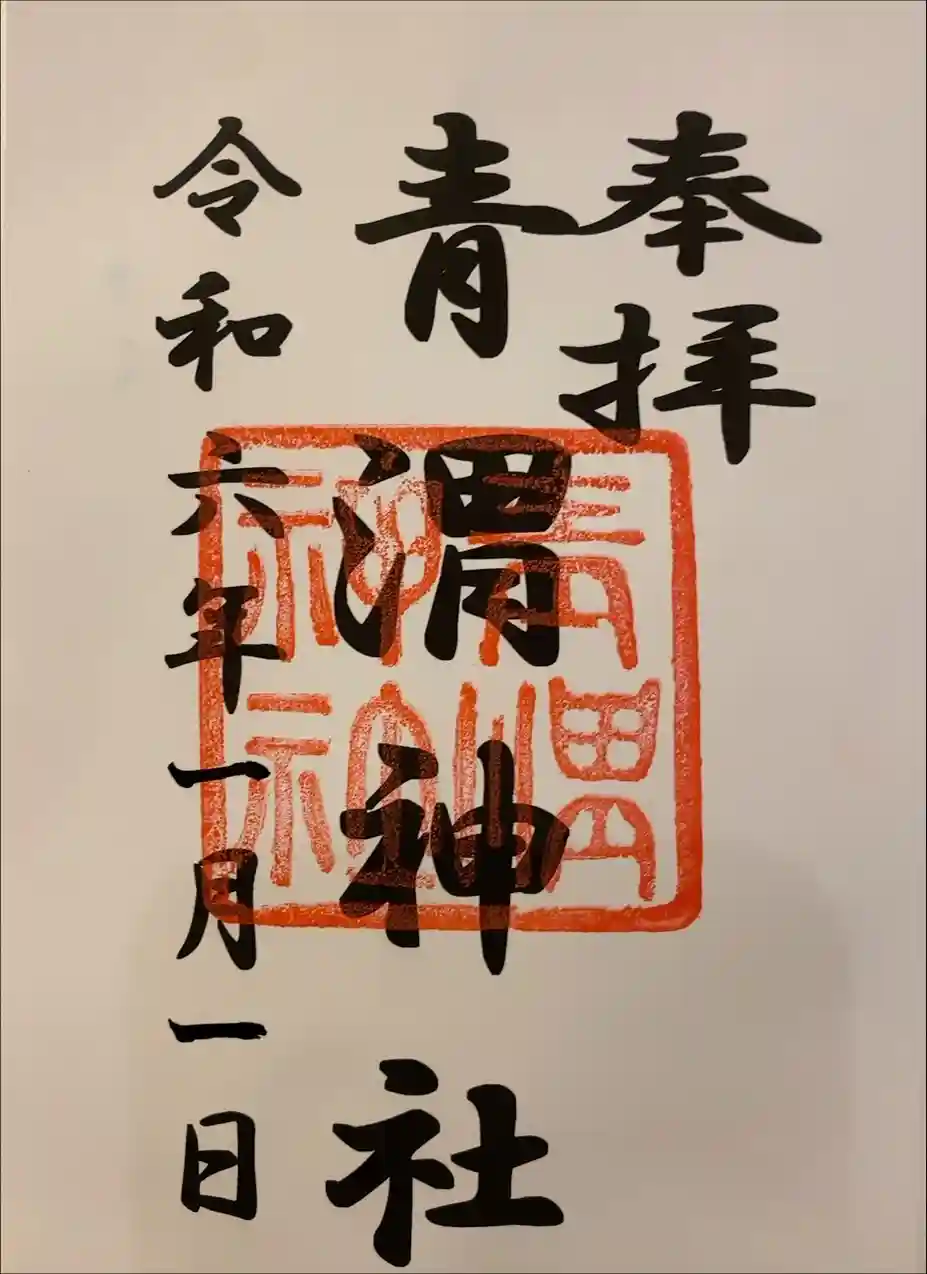 奉拝
青渭神社
令和六年一月一日
青渭神社